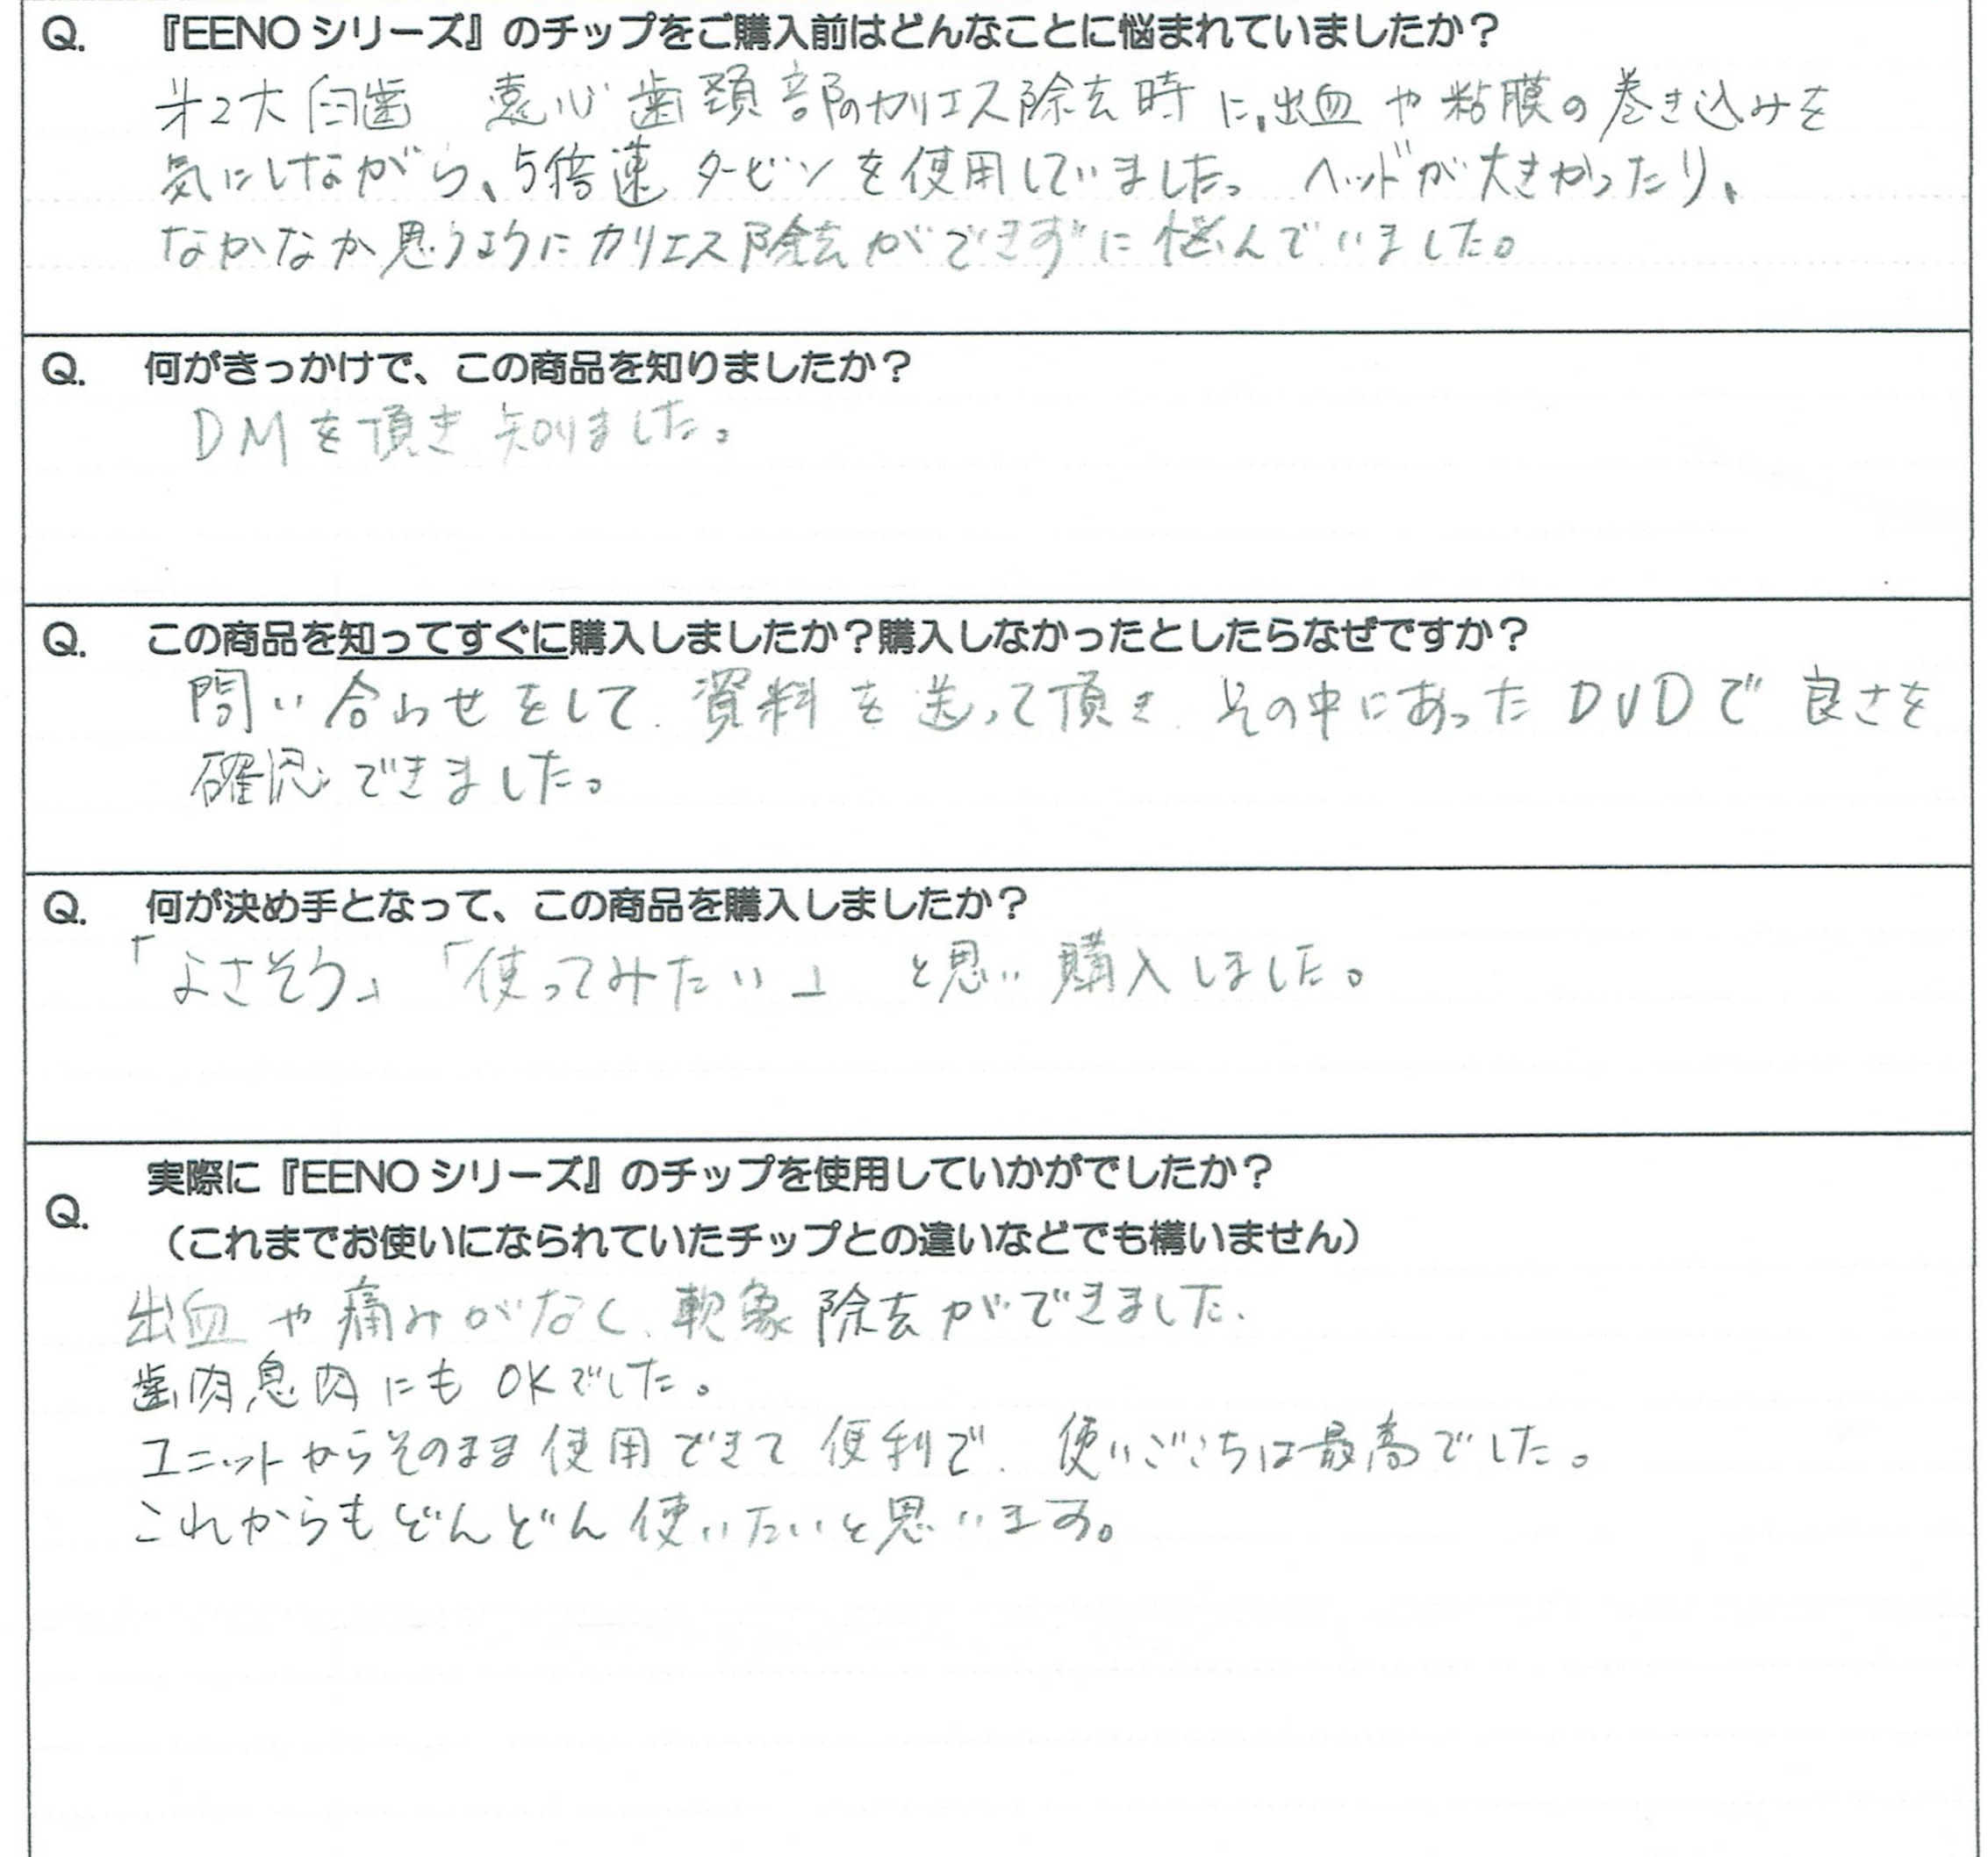 Q. 『EENO シリーズ』のチップをご購入前はどんなことに悩まれていましたか？
第2大臼歯　遠心歯頚部のカリエス除去時に、出血や粘膜の巻き込みを
気にしながら、5倍速タービンを使用していました。ヘッドが大きかったり、
なかなか思うようにカリエス除去ができずに悩んでいました。
Q. 何がきっかけで、この商品を知りましたか？
DMを頂き知りました。
Q. この商品を知ってすぐに購入しましたか？購入しなかったとしたらなぜですか？
問い合わせをして、資料を送って頂き、その中にあったDVDで良さを
確認できました。
Q. 何が決め手となって、この商品を購入しましたか？
「よさそう」「使ってみたい」と思い購入しました。
Q. 実際に『EENO シリーズ』のチップを使用していかがでしたか？
（これまでお使いになられていたチップとの違いなどでも構いません）
出血や痛みがなく、軟象除去ができました.
歯肉息肉にもOKでした。
ユニットからそのまま使用できて便利で、使いごこちは最高でした。
これからもどんどん使いたいと思います。